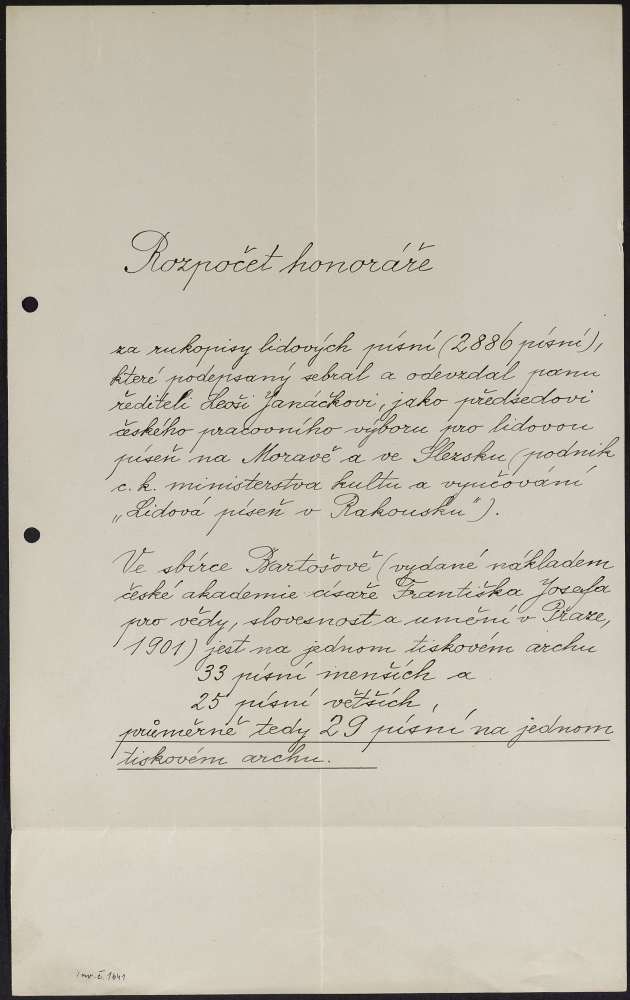 Rozpočet honoráře
za rukopisy lidových písní (2886 písní),
které podepsaný sebral a odevzdal panu
řediteli Leoši Janáčkovi, jako předsedovi
českého pracovního výboru pro lidovou
píseň na Moravě a ve Slezsku (podnik
c. k. ministerstva kultu a vyučování
„Lidová píseň v Rakousku").
Ve sbírce Bartošově (vydané nákladem
české akademie císaře Františka Josefa
pro vědy, slovesnost a umění v Praze,
1901) jest na jednom tiskovém archu
33 písní menších a
25 písní větších,
průměrně tedy 29 písní na jednom
tiskovém archu.
inv. č. 1641